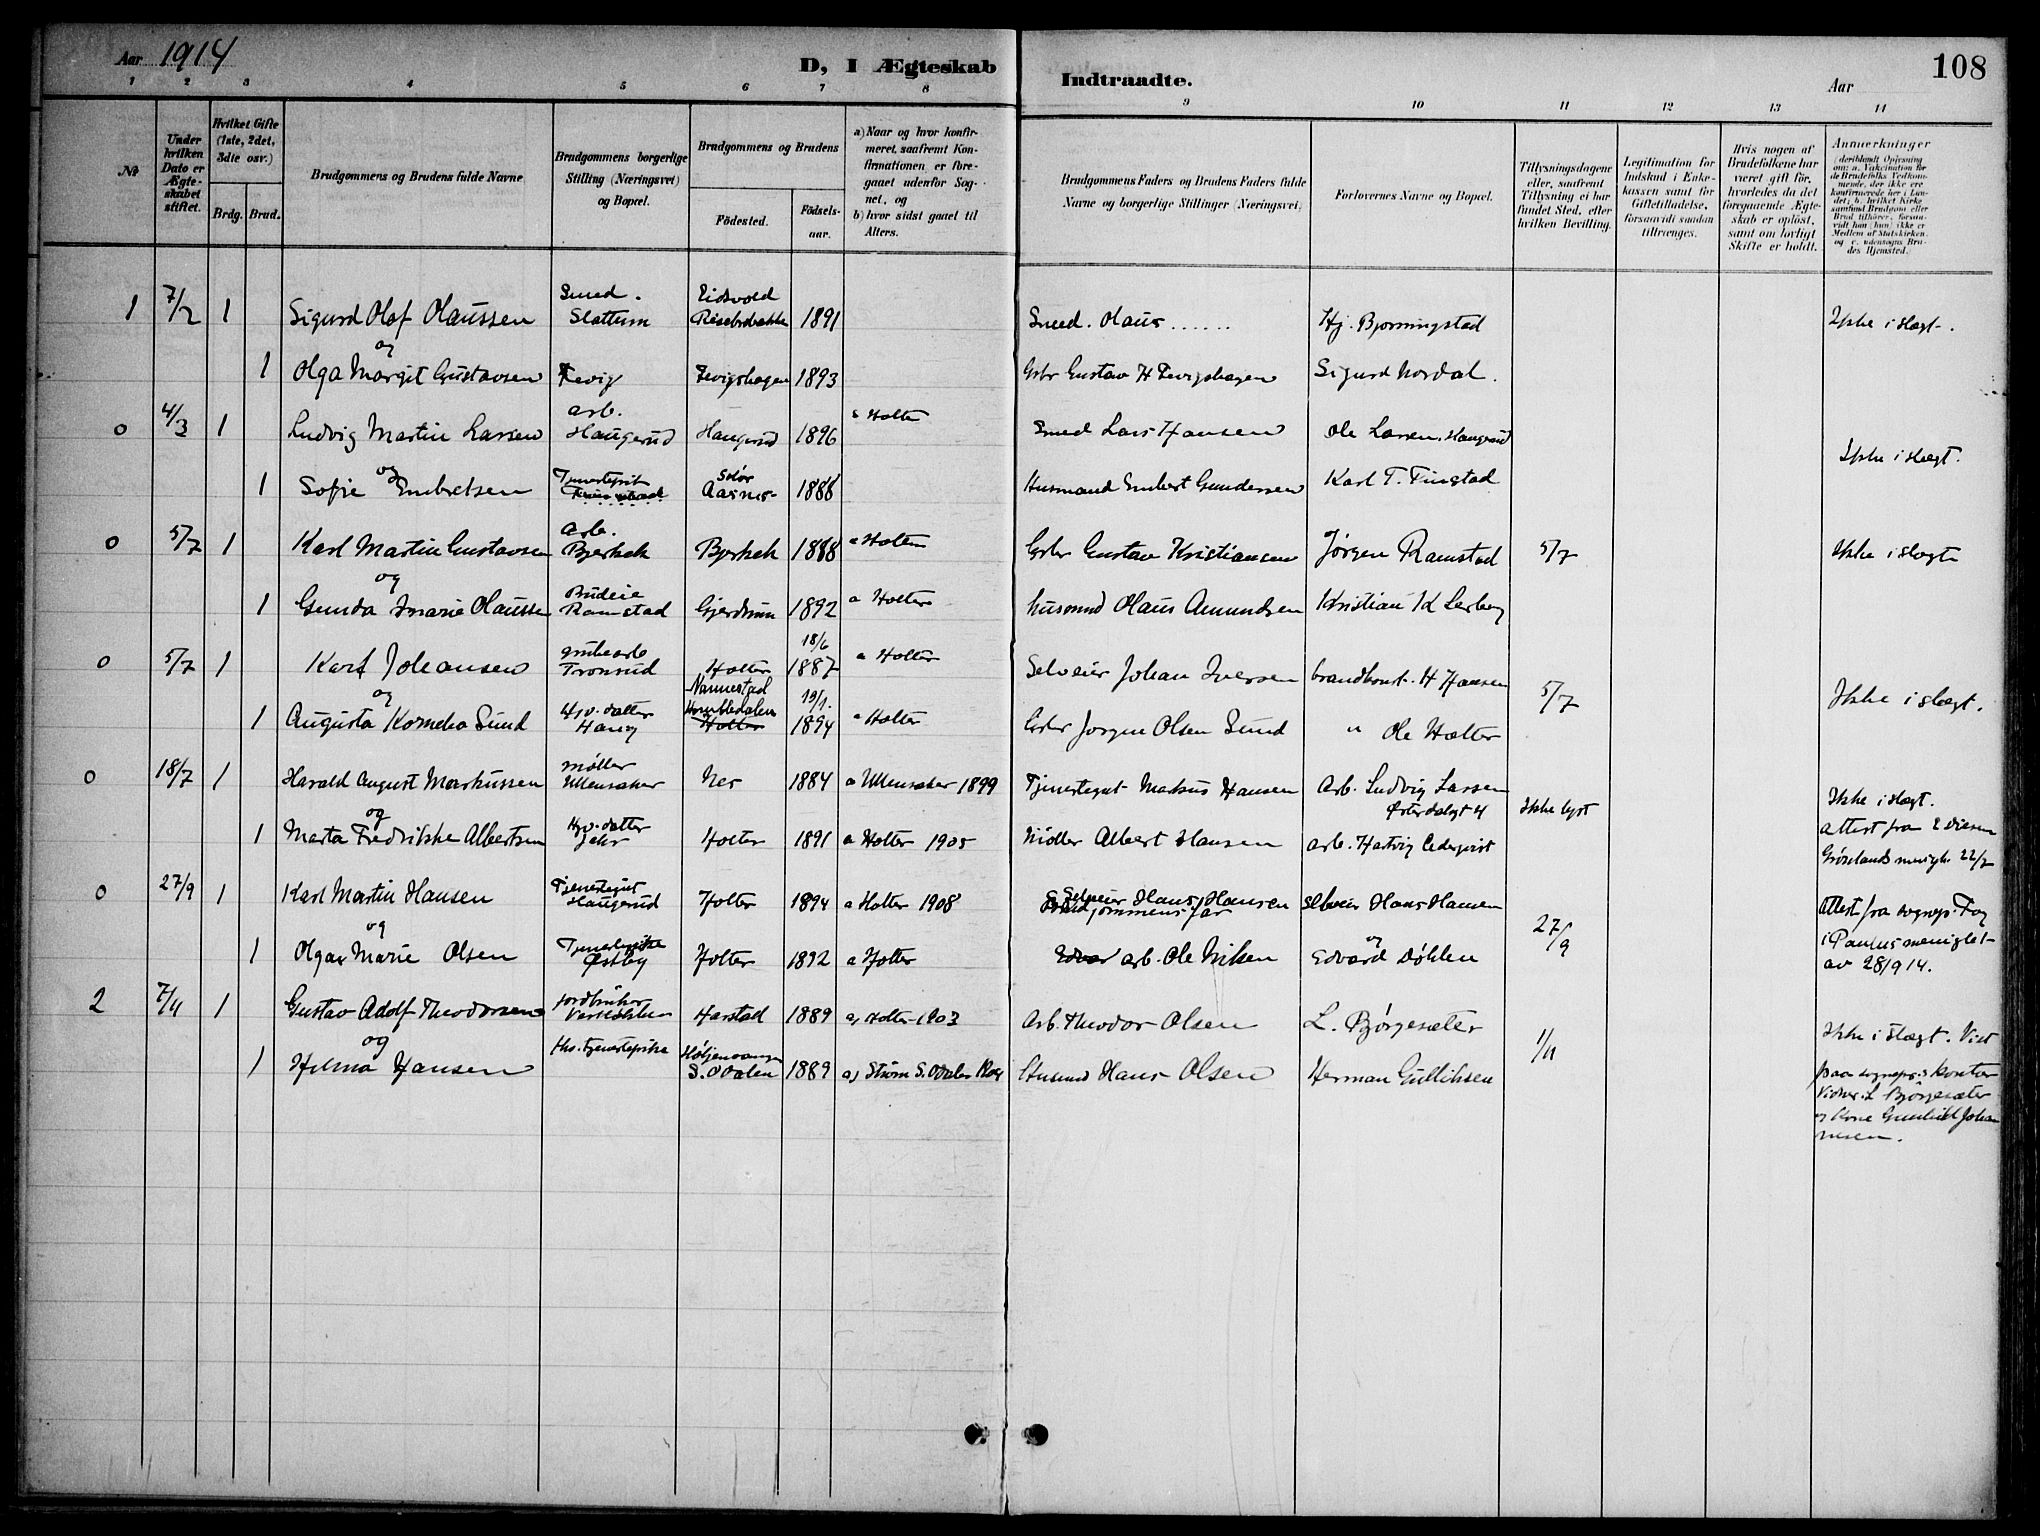 Aar 1914
D, I Ægteskab
Indtraadte.
Aar
108
1 2 3 4 5 6 7 8 9 10 11 12 13 14
№
Under hvilken Dato er Ægteskabet stiftet.
Hvilket Gifte (1ste, 2det, 3die osv.)
Brdg. Brud.
Brudgommens og Brudens fulde Navne
Brudgommens borgerlige Stilling (Næringsvei) og Bopæl.
Brudgommens og Brudens
Födested.
Födsels-aar.
a) Naar og hvor konfirmeret, saafremt Konfirmationen er foregaaet udenfor Sognet, og
b) hvor sidst gaaet til Alters.
Brudgommens Faders og Brudens Faders fulde Navne og borgerlige Stillinger (Næringsvei)
Forlovernes Navne og Bopæl.
Tillysningsdagene eller, saafremt Tillysning ei har fundet Sted, efter hvilken Bevilling.
Legitimation for Indskud i Enkekassen samt for Giftetilladelse, forsaavidt saadan tiltrænges.
Hvis nogen af Brudefolkene har været gift för, hvorledes da det foregaaende Ægteskab er oplöst, samt om lovligt Skifte er holdt.
Anmærkninger
1 7/2 1 Sigurd Olof Olaussen Smed. Slattum Eidsvold 1891 Smed. Olaus ...... Hj. Bjønningstad Ikke i slægt.
og
1 Olga Margit Gustavsen Tevig Tevigshagen 1893 Gbr Gustav H Tevigshagen Sigurd Nordal.
0 4/3 1 Ludvig Martin Larsen arb. Haugerud Haugerud 1896 Holter Smed Lars Hansen Ole Larsen, Haugerud Ikke i slægt.
og
1 Sofie Embretsen Tjenestepik Solør Aasnes 1888 Husmand Embret Gundersen Karl T. Finstad
0 5/7 1 Karl Martin Gustavsen arb. Bjerkek Bjerkek 1888 a Holter Gbr Gustav Kristiansen Jørgen Ramstad 5/7 Ikke i slægt
og
1 Gunda Marie Olausse Budeie Ramstad Gjerdrum 1892 a Holter husmnd Olaus Amundsen Kristian K Lerberg
0 5/7 1 Karl Johansen grubearb Tronsud Holter 18/6 1887 a Holter Selveier Johan Iversen brandkonst. H Hansen 5/7 Ikke i slægt.
og
1 Augusta Kornelia Sund Hjv. datter Haug Nannestad Holter 19/1. 1894 a Holter Gbr Jørgen Olsen Sund " Ole Holter
0 18/7 1 Harald August Markussen møller Ullensaker Nes 1884 a Ullensaker 1899 Tjenestegut Markus Hansen Arb. Ludvig Larsen Østerdalsgt 4 Ikke lyst Ikke i slægt.
og
1 Marta Fredrikke Albertsen Hjv. datter Jehr Holter 1891 a Holter 1905 Møller Albert Hansen arb. Hartvig Cederqvist attest fra
Grønlands menigh. 22/7
0 27/9 1 Karl Martin Hansen Tjenestegut Haugerud Holter 1894 a Holter 1908 Selveier Hans Hansen Brudgommens far Selveier Hans Hansen 27/9 Attest fra sognepr.
og
1 Olga Marie Olsen Tjenestepike Østby Holter 1892 a Holter arb. Ole Nilsen og Edvard Døhlen i Paulus menighet
av 28/9 14.
2 7/11 1 Gustav Adolf Theodorsen Jordbruker Harstad 1889 a, Holter 1903 Arb. Theodor Olsen L. Bjørgesæter 1/11 Ikke i slægt. Viet
og
1 Hilma Hansen Hv. tjenestepike S. Odalen 1889 a, Strøm S. Odalen Husmnd Hans Olsen Herman Gullihsen paa sognepr.s kontor
Vidner: L Bjørgesæter
og Kone Gunhild Johan
nesen.